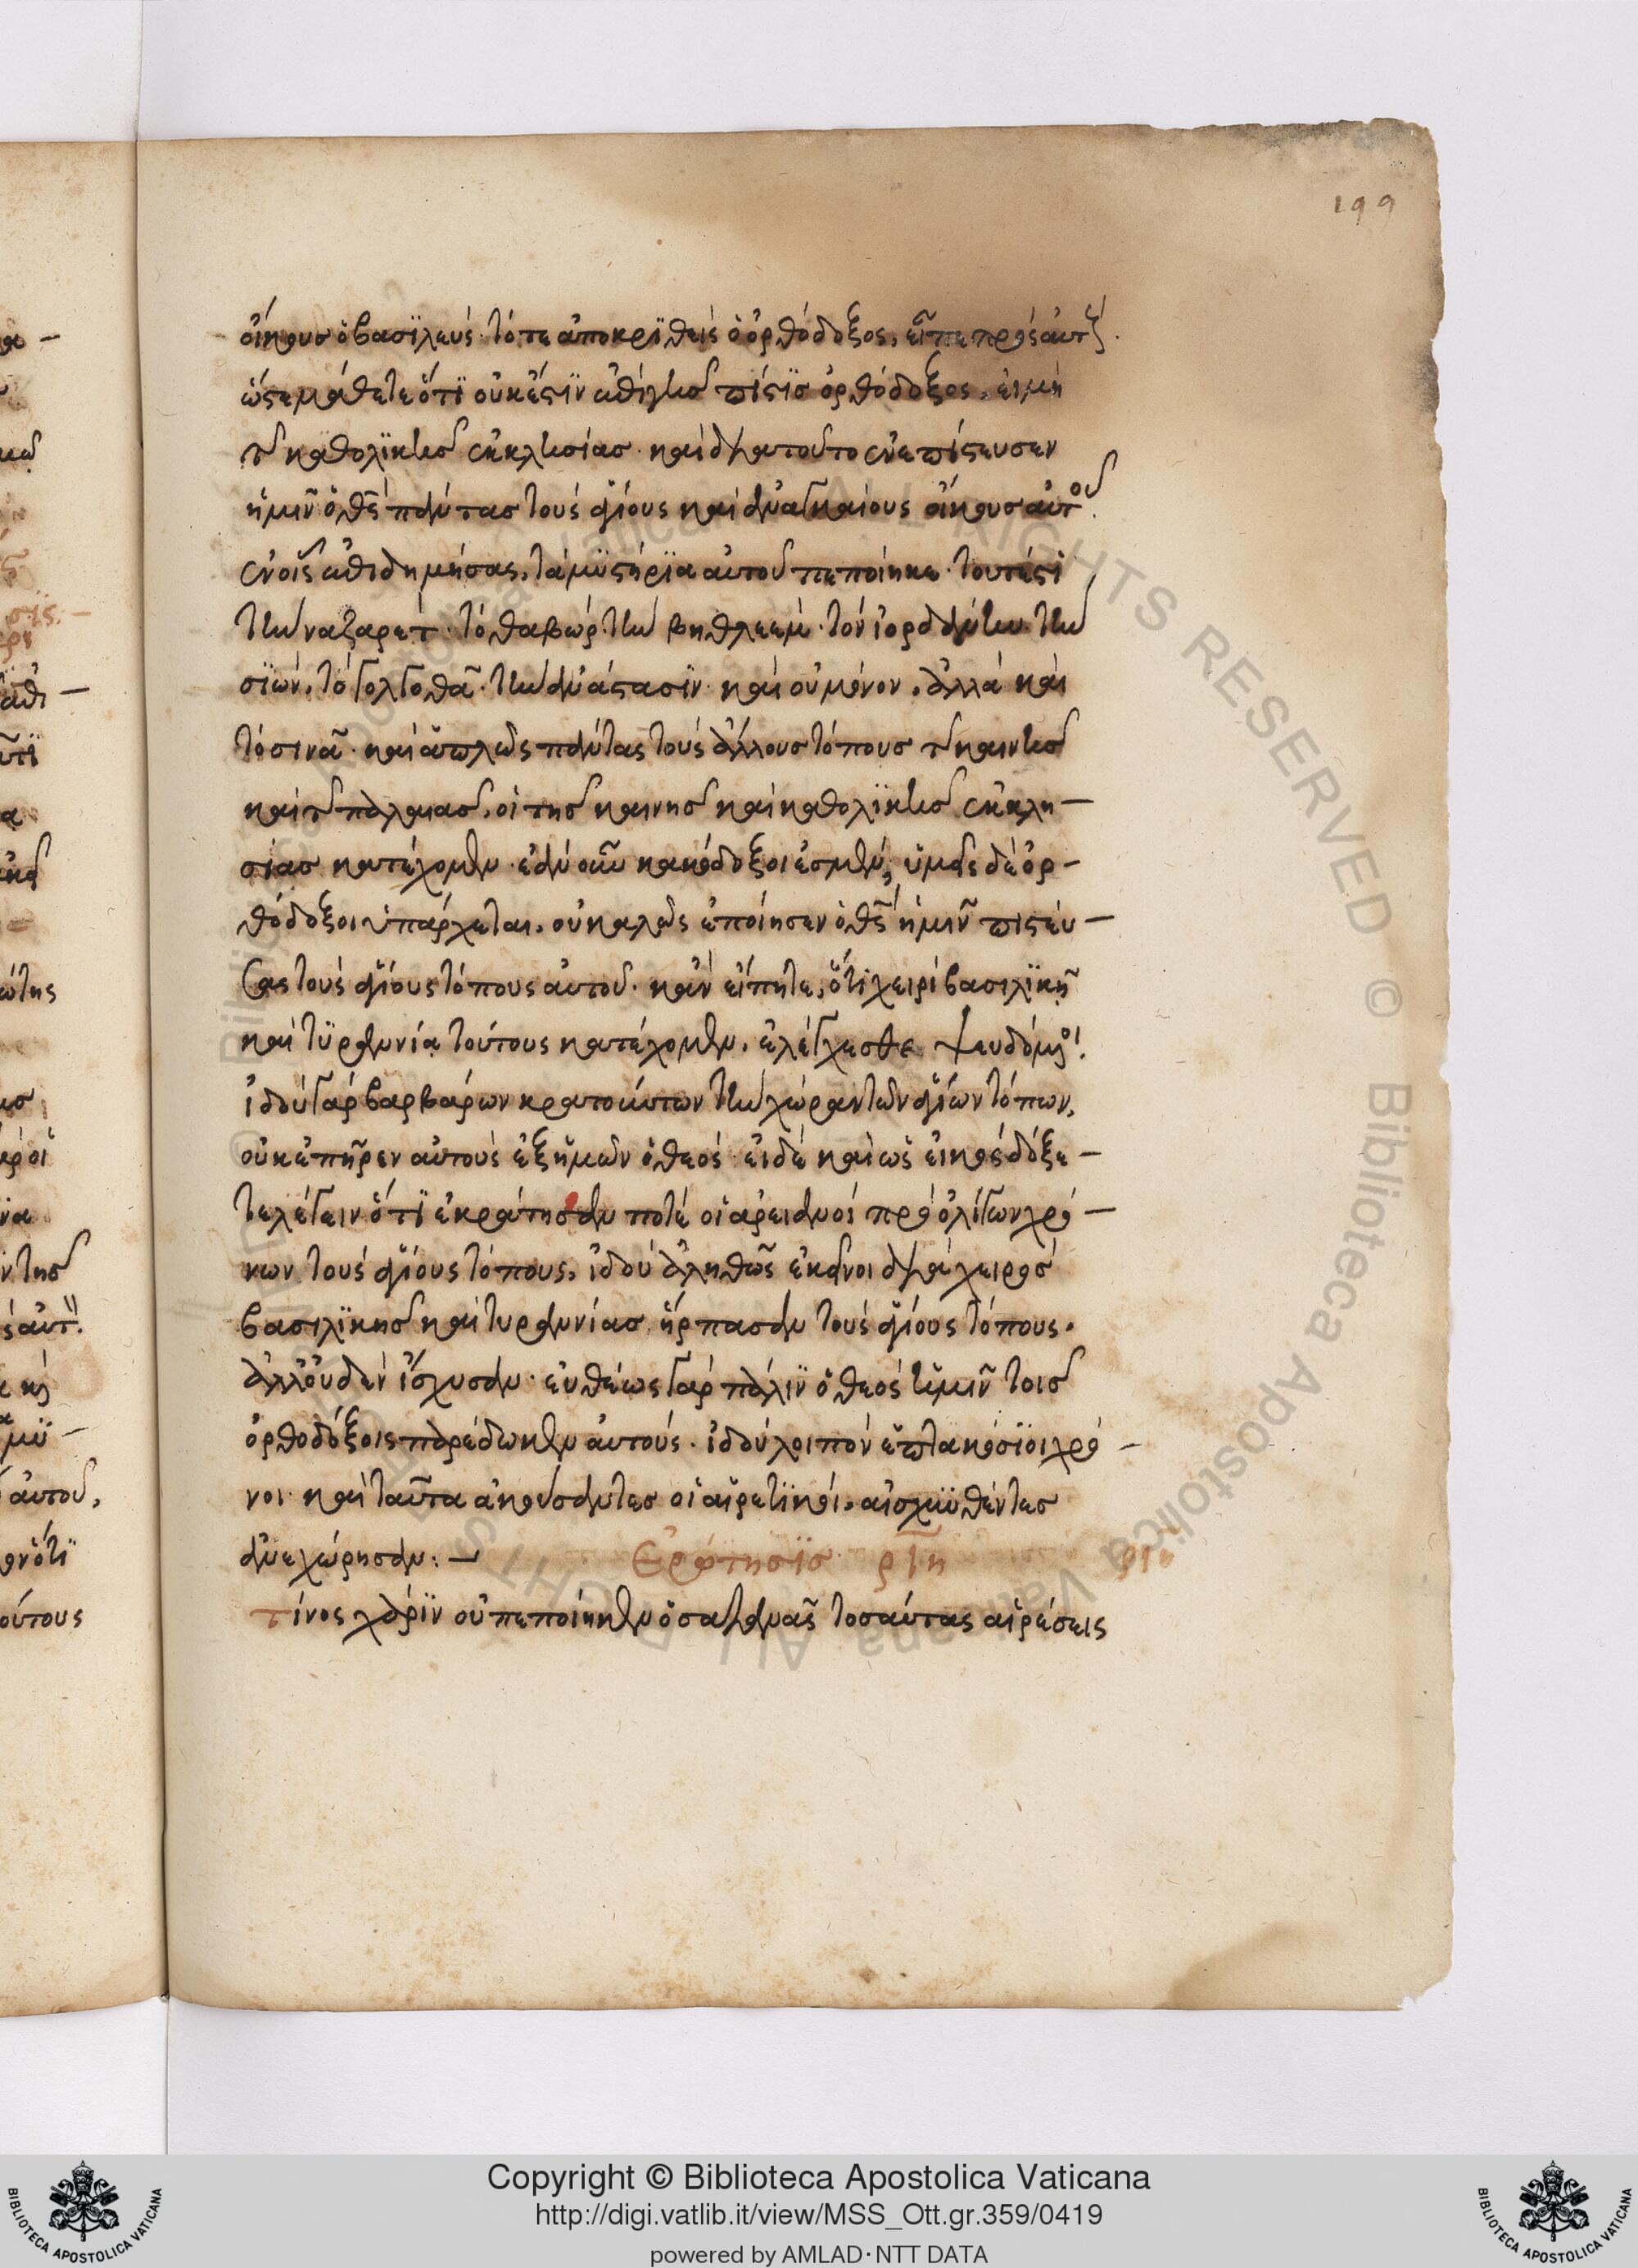 199
οἴκους ὁ βασϊλεύς· τότε ἀποκρϊθείς ὁ ὀρθόδοξος, εἶπε πρὸς αὐτούς·
ὥστε μάθετε ὅτϊ οὐκ ἔστϊν πίστϊς ὀρθόδοξος, εἰ μὴ
τῆς καθολϊκῆς ἐκκλησίας· καὶ διατοῦτο ἐνεπίστευσεν
ἡμῖν ὁ θς πάντας τοὺς ἁγίους καὶ ἀναγκαίους οἴκους αὐτοῦ.
ἐν οἷς ἐπιδημήσας, τὰ μϋστήρϊα αὐτοῦ πεποίηκε· τουτέστι
τὴν ναζαρέτ· τὸ θαβώρ· τὴν βηθλεέμ· τὸν ἰορδάνην· τὴν
σϊών, τὸ γολγοθᾶ· τὴν ἀνάστασϊν· καὶ οὐ μόνον, ἀλλὰ καὶ
τὸ σινᾶ· καὶ ἁπλῶς πάντας τοὺς ἄλλους τόπους τῆς καινῆς
καὶ τῆς παλαιᾶς, οἱ τῆς καινῆς καὶ καθολϊκῆς ἐκκλη-
σίας κατέχομεν· ἐὰν οὖν κακόδοξοι ἐσμέν, ὑμεῖς δὲ ὀρ-
θόδοξοι ὑπάρχεται, οὐ καλῶς ἐποίησεν ὁ θς ἡμῖν πιστεύ-
σας τοὺς ἁγίους τόπους αὐτοῦ· κἂν εἴπητε, ὅτι χειρὶ βασιλϊκῇ
καὶ τϋραννίᾳ τούτους κατέχομεν, ἐλέγχεσθε ψευδόμενοι.
ἰδοὺ γὰρ βαρβάρων κρατούντων τὴν χώραν τῶν ἁγίων τόπων,
οὐκ ἐπῆρεν αὐτοὺς ἐξ ἡμῶν ὁ θεός· εἰ δὲ καὶ ὡς εἰκὸς δόξε-
τε λέγειν ὅτϊ ἐκράτησαν ποτὲ οἱ ἀρειανοὶ πρὸ ὀλίγων χρό-
νων τοὺς ἁγίους τόπους, ἰδοὺ ἀληθῶς ἐκεῖνοι διὰ χειρὸς
βασιλϊκῆς καὶ τυραννίας ἥρπασαν τοὺς ἁγίους τόπους.
ἀλλ' οὐδὲν ἴσχυσαν· εὐθέως γὰρ πάλϊν ὁ θεὸς ἡμῖν τοῖς
ὀρθοδόξοις παρέδωκεν αὐτούς· ἰδοὺ λοιπὸν ἑπτακόσϊοι χρό-
νοι· καὶ ταῦτα ἀκούσαντες οἱ αἱρετϊκοί, αἰσχυνθέντες
ἀνεχώρησαν:—
Ερώτησϊς ριη
ριη
τίνος χάρϊν οὐ πεποίηκεν ὁ σατανᾶς τοσαύτας αἱρέσεις
Copyright © Biblioteca Apostolica Vaticana
http://digi.vatlib.it/view/MSS_Ott.gr.359/0419
powered by AMLAD·NTT DATA